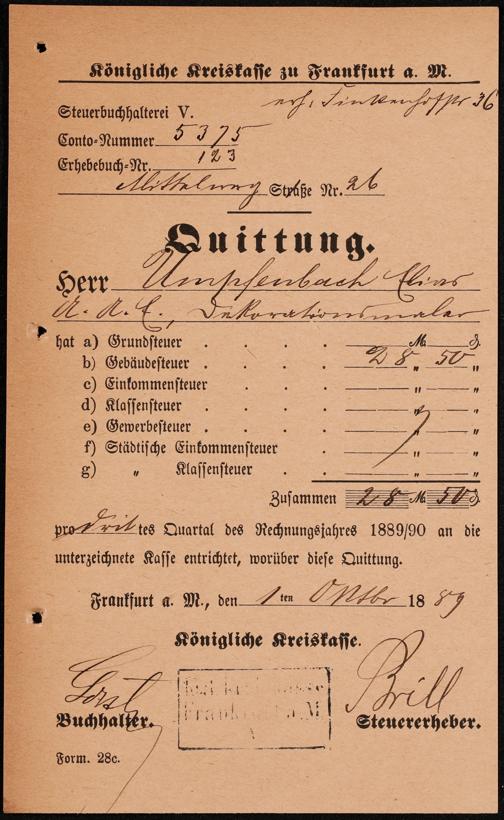 Königliche Kreiskasse zu Frankfurt a. M.
Steuerbuchhalterei V.
36
Conto-Nummer 5375
Erhebebuch-Nr. 123
Mittelweg Straße Nr. 26
Quittung.
Herr Umpfenbach Elias
Dekorationsmaler
hat a) Grundsteuer . . . . M. S.
b) Gebäudesteuer . . . . 28 „ 50 „
c) Einkommensteuer . . . „ „
d) Klassensteuer . . . . „ „
e) Gewerbesteuer . . . . „ „
f) Städtische Einkommensteuer . „ „
g) „ Klassensteuer . . „ „
Zusammen 28 M. 50 S.
pro drittes Quartal des Rechnungsjahres 1889/90 an die
unterzeichnete Kasse entrichtet, worüber diese Quittung.
Frankfurt a. M., den 1 ten Oktbr 1889
Königliche Kreiskasse.
Brill
Buchhalter. Steuererheber.
Kreiskasse
Frankfurt a. M
Form. 28c.